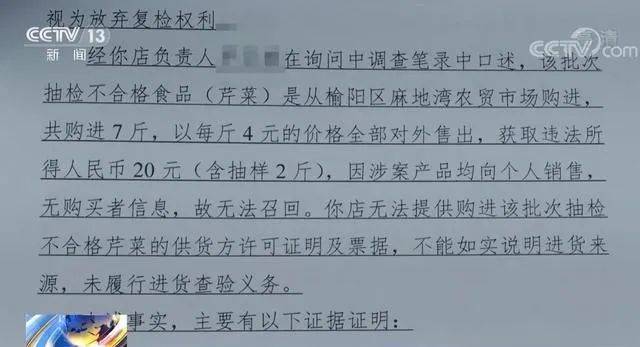 CCTV 13
新闻
CCTV.com
视为放弃复检权利
经你店负责人 在询问中调查笔录中口述，该批次
抽检不合格食品（芹菜）是从榆阳区麻地湾农贸市场购进，
共购进 7 斤，以每斤 4 元的价格全部对外售出，获取违法所
得人民币 20 元（含抽样 2 斤），因涉案产品均向个人销售，
无购买者信息，故无法召回。你店无法提供购进该批次抽检
不合格芹菜的供货方许可证明及票据，不能如实说明进货来
源，未履行进货查验义务。
事实，主要有以下证据证明：